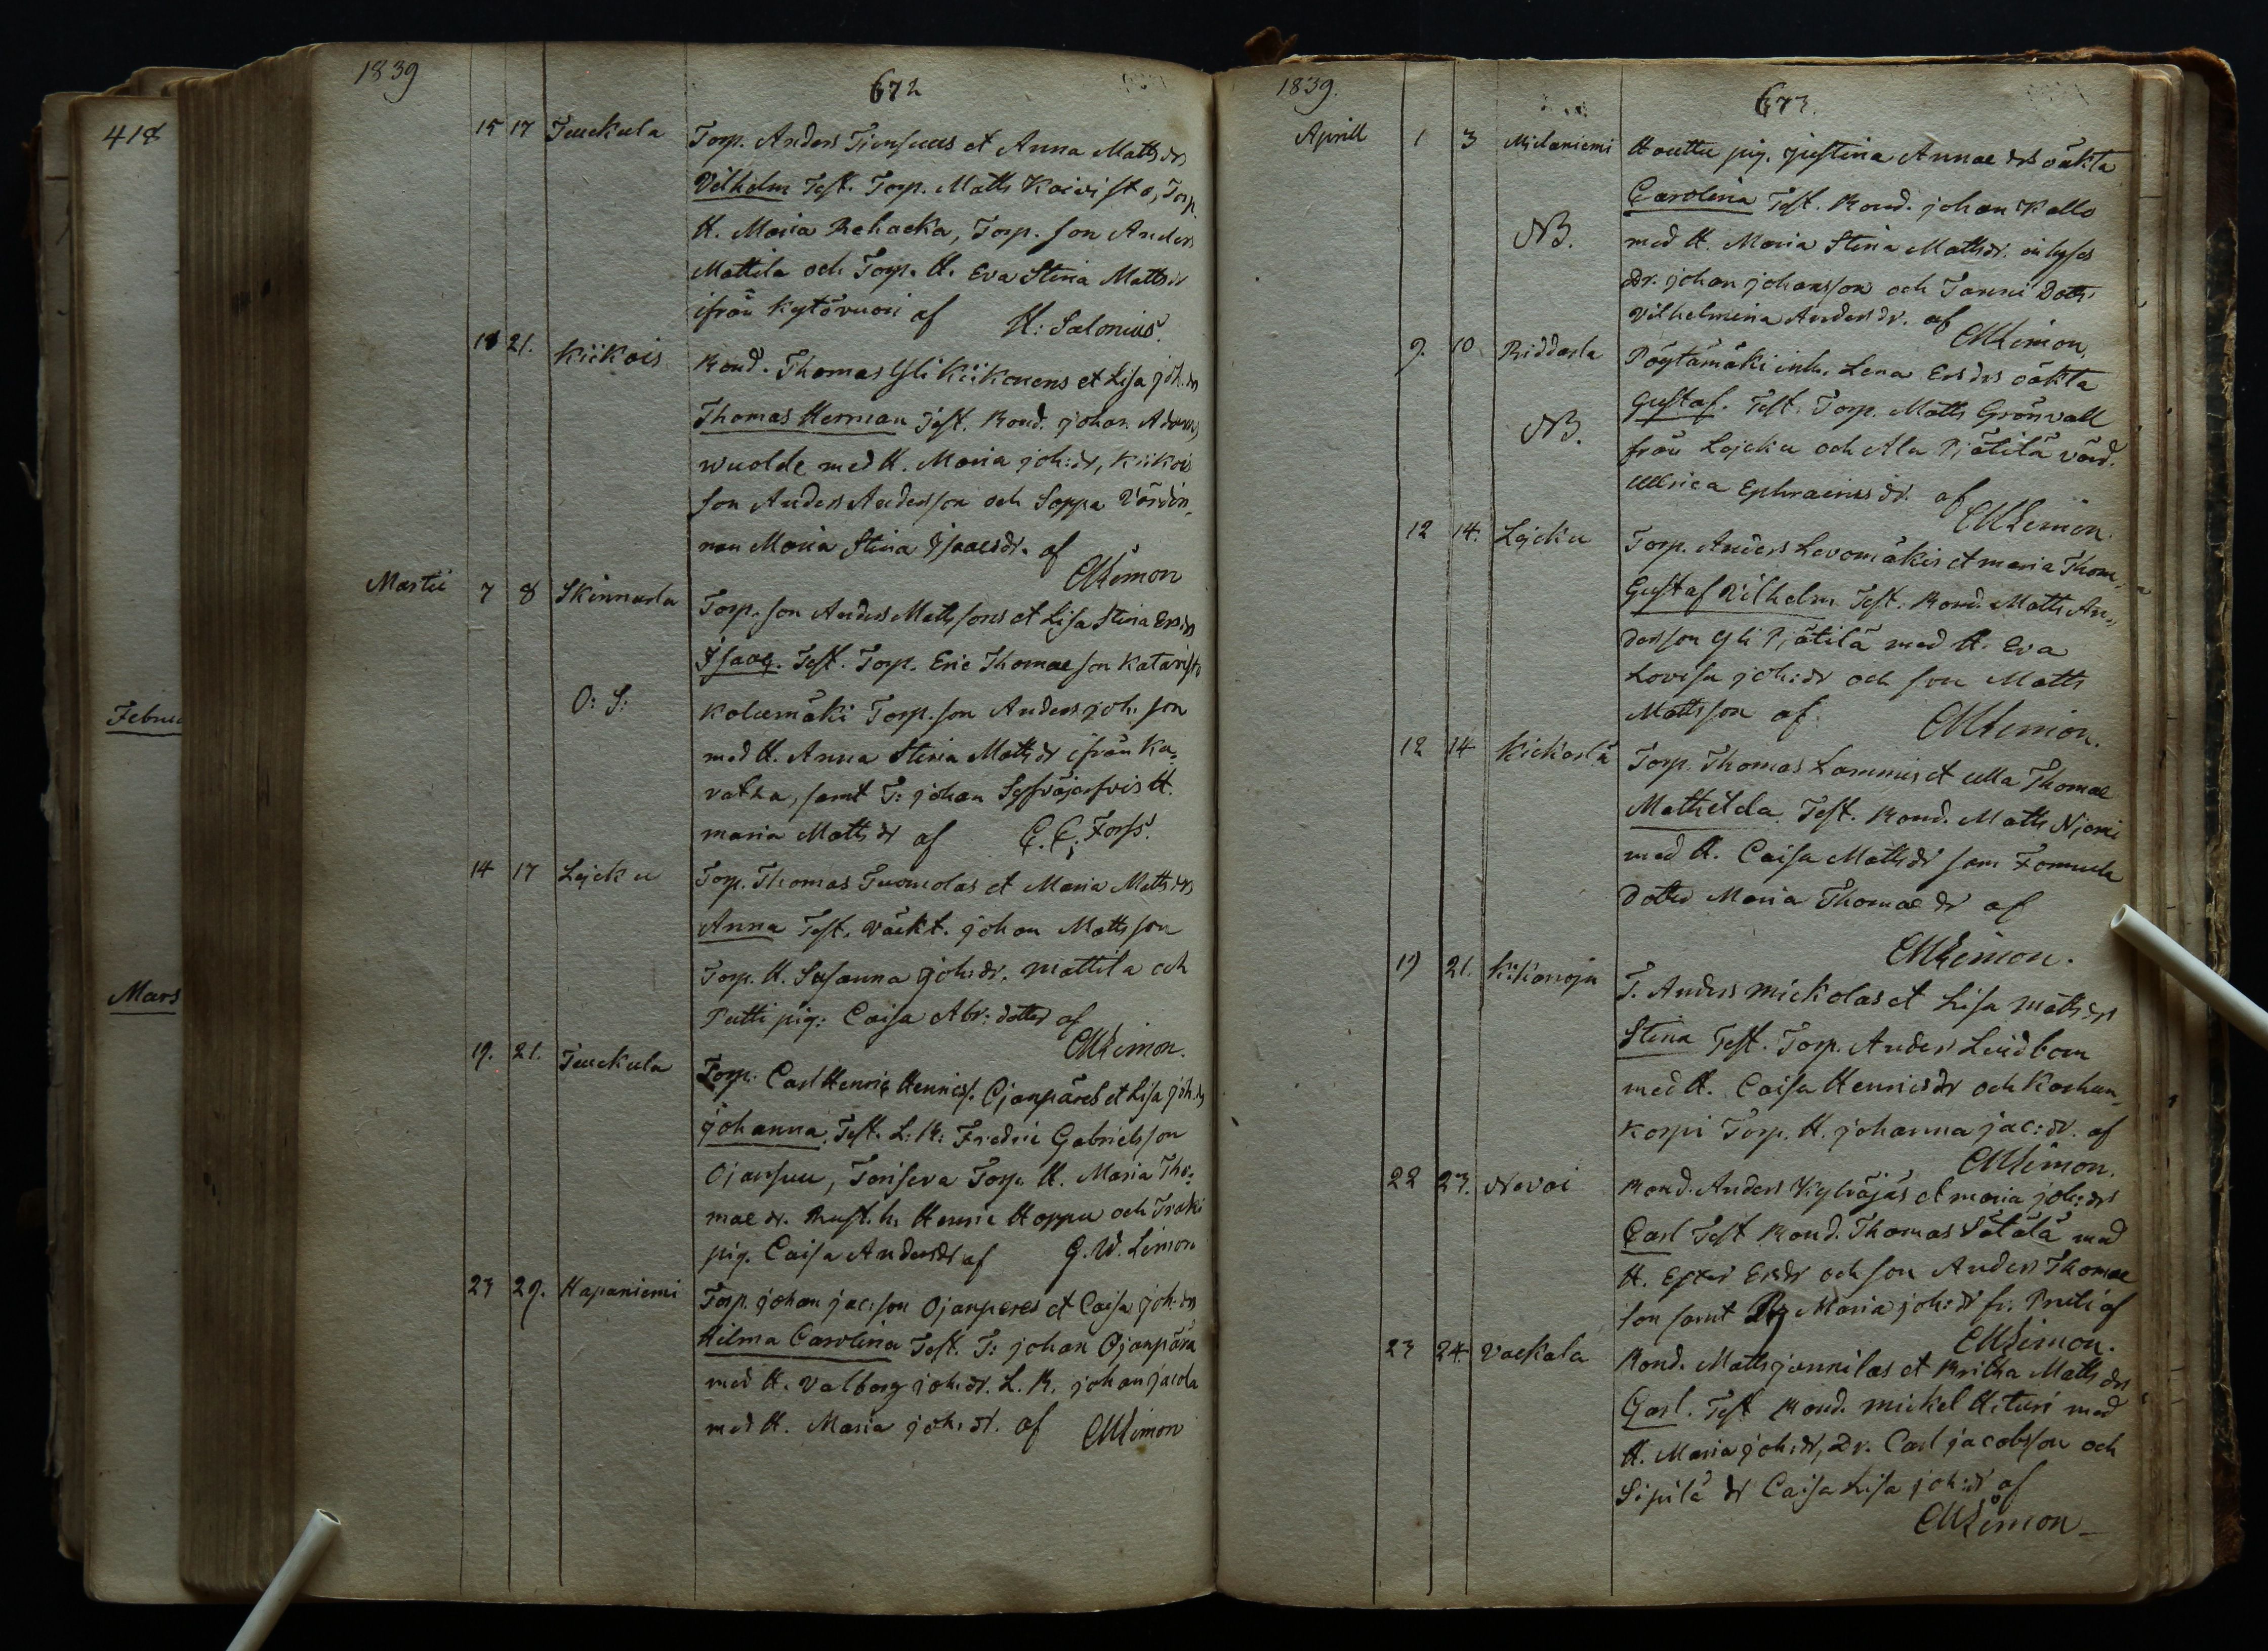 418
Februa
Mars
1839
672
15 17 Tuckula Torp. Anders Tiensuus et Anna Matts drs
Vilhelm Test. Torp. Matts Koivisto, Torp.
H. Maria Rehacka, Torp. son Anders
Mattila och Torp. H. Eva Stina Matts dr
ifrån Kytövuori af H: Salonius.
18 21. Kiikois Bond. Thomas Yli Kiikonens et Lisa joh. drs
Thomas Herman Test. Bond. johan Adams
wuolde med H. Maria joh: dr, Kiikois
son Anders Andersson och Soppa Värdin-
nan Maria Stina Isaacs dr. af
CMLimon
Martii 7 8 Skinnarla Torp. son Anders Mattssons et Lisa Stina Ers drs
Isaac. Test. Torp. Eric Thomae son Katavisto
O: S: Kolumäki Torp. son Anders joh. son
med H. Anna Stina Matts dr ifrån Ka-
vatka, samt T: johan Sysväjärfvis H.
maria Matts dr af C. E. Forss.
14 17 Lycku Torp. Thomas Tuomolas et Maria Matts drs
Anna Test. Väckt. johan Mattsson
Torp. H. Susanna joh: dr. Mattila och
Putti pig: Caisa Abr: dotter af
CMLimon.
19. 21. Tuckula Torp. Carl Henric Henricss. Ojanpäres et Lisa joh. drs
johanna. Test. L: K: Fredric Gabrielsson
Ojansuu, Torisева Torp. H. Maria Tho-
mae dr. Rust. h. Henric Hoppu och Traki
pig. Caisa Anders dr af G. W. Limon
23 29. Hapaniemi Torp. johan jac: son Ojanperes et Caisa joh: drs
Hilma Carolina Test. T: johan Ojanpära
med H. Valborg joh: dr. L. R. johan jacola
med H. Maria joh: dr. af CMLimon
1839.
673.
Aprill 1 3 Miclaniemi Houttu pig. justina Annae drs oäkta
Carolina Test. Bond. johan Kallo
NB. med H. Maria Stina Matts dr. inhyses
dr. johan johansson och Tanni Dottr
Vilhelmina Anders dr. af
CMLimon.
9. 10 Riddarla Pöytämäki inh. Lena Ers drs oäkta
Gustaf. Test. Torp. Matts Grönvall
NB. från Lycku och Ala Pjätilä värd.
Ullrica Ephraims dr. af
CMLimon.
12 14. Lycku Torp. Anders Levomäkis et maria Thom.
Gustaf Vilhelm Test. Bond. Matts An-
dersson Yli Pjätilä med H. Eva
Lovisa joh: dr och son Matts
Mattsson af CMLimon.
12 14 Kickarlä Torp. Thomas Lammis et Ulla Thomae
Mathilda Test. Bond. Matts Njomi
med H. Caisa Matts dr sam Fommula
dotter Maria Thomae dr af
CMLimon.
19 21. Kikonoja T. Anders Mickolas et Lisa Matts drs
Stina Test. Torp. Anders Lindbom
med H. Caisa Henrics dr och Korhan-
korpi Torp. H. johanna jac: dr. af
CMLimon.
22 23. Novoi Bond. Anders Kylväjäs et maria joh: drs
Carl Test Bond. Thomas Sätälä med
H. Ester Ers dr och son Anders Thomae
son samt Pig Maria joh: dr fr. Pruti af
CMLimon.
23 24. Vackala Bond. Matts jannilas et Britha Matts drs
Carl. Test Bond. mickel Hituri med
H. Maria joh: dr, Dr. Carl jacobsson och
Sipilä dr Caisa Lisa joh: dr af
CMLimon